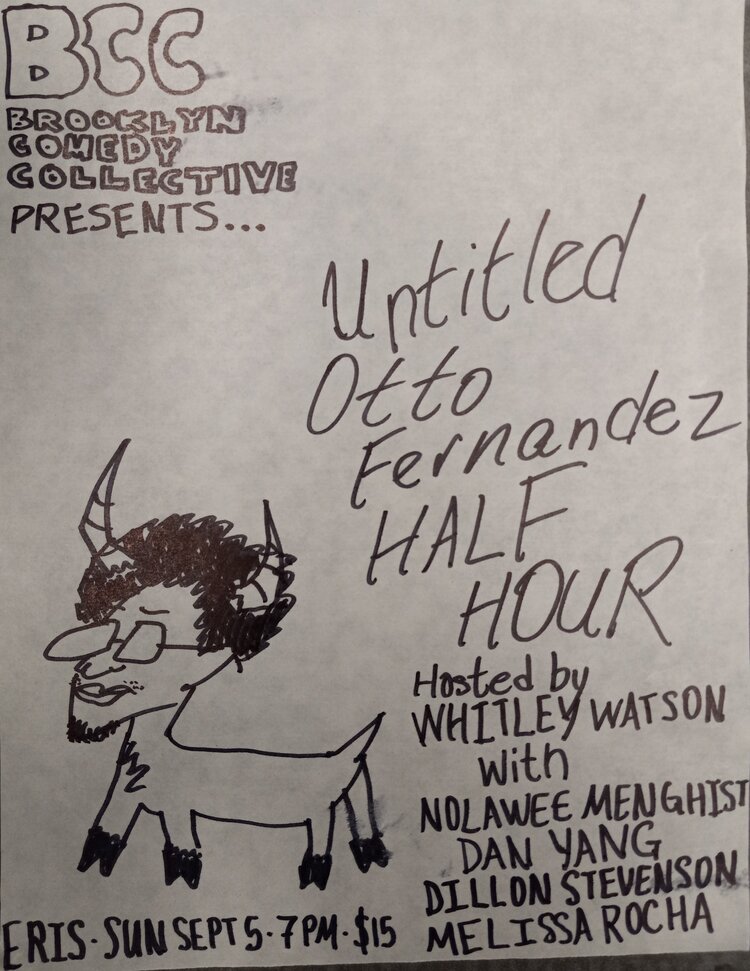 BCC
BROOKLYN
COMEDY
COLLECTIVE
PRESENTS...
Untitled
Otto
Fernandez
HALF
HOUR
Hosted by
WHITLEY WATSON
With
NOLAWEE MENGHIST
DAN YANG
DILLON STEVENSON
MELISSA ROCHA
ERIS · SUN SEPT 5 · 7PM · $15